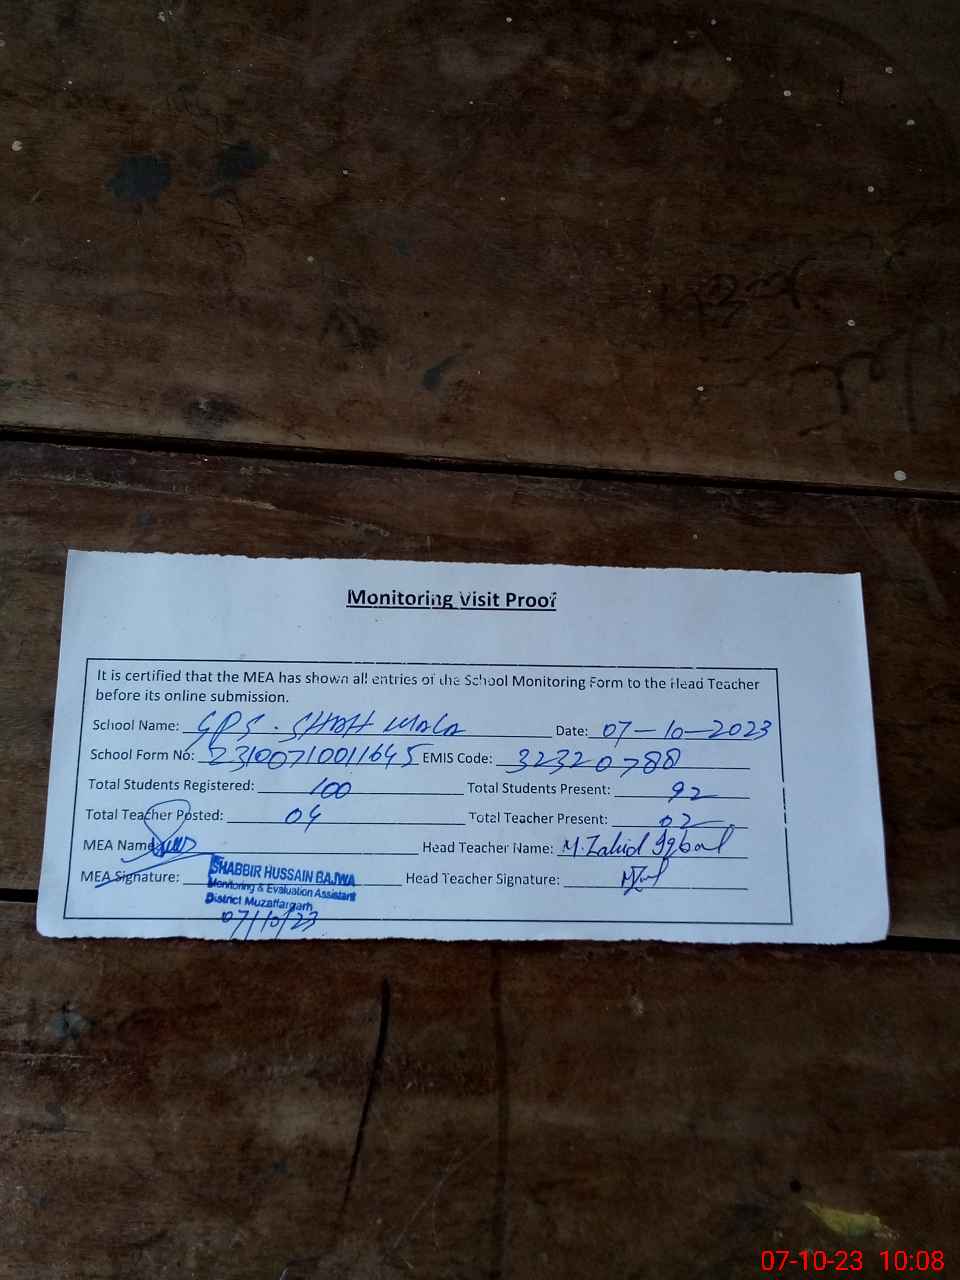 Monitoring Visit Proof
It is certified that the MEA has shown all entries of the School Monitoring Form to the Head Teacher
before its online submission.
School Name: GPS. SHAH WALA Date: 07-10-2023
School Form No: 23100710011645 EMIS Code: 32320788
Total Students Registered: 100 Total Students Present: 92
Total Teacher Posted: 04 Total Teacher Present: 02
MEA Name Head Teacher Name: M. Zahid Iqbal
MEA Signature: Head Teacher Signature:
SHABBIR HUSSAIN BAJWA
Monitoring & Evaluation Assistant
District Muzaffargarh
07/10/23
07-10-23 10:08